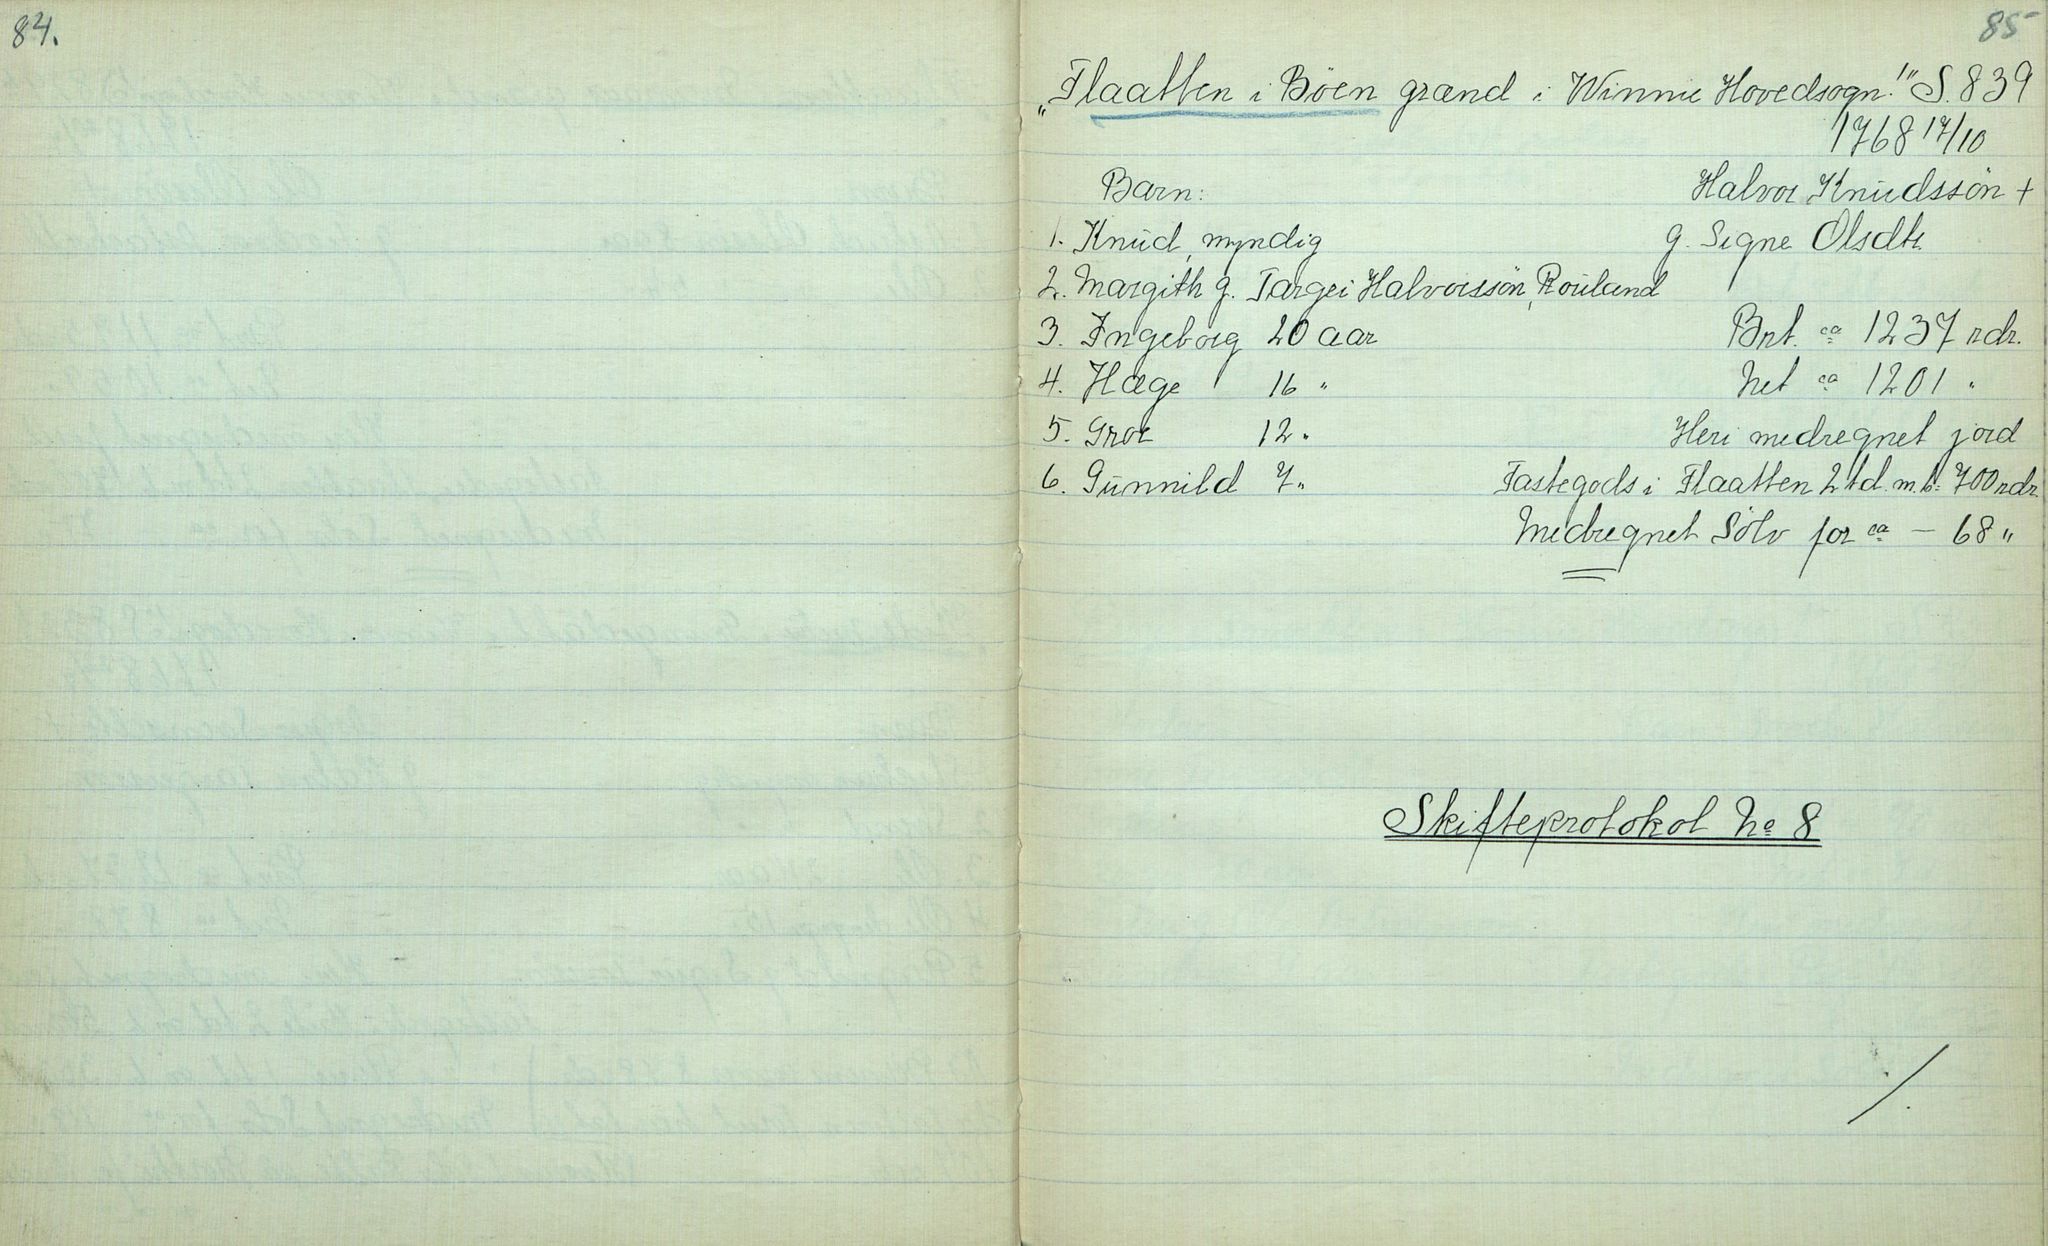 84.
85
„Flaatten i Böen grænd i Winnie Hovedsogn!" S. 839
1768 17/10
Barn: Halvor Knudssön +
1. Knud, myndig g. Signe Olsdtr.
2. Margith g. Targei Halvorssön, Rouland
3. Ingeborg 20 aar Brt. ca 1237 rdr.
4. Hæge 16 " Net ca 1201 "
5. Groe 12 " Heri medregnet jord
6. Gunnild 7 " Fastegods i Flaatten 2 td. m. b = 700 rdr.
Medregnet Sölv for ca — 68 "
Skifteprotokol No 8